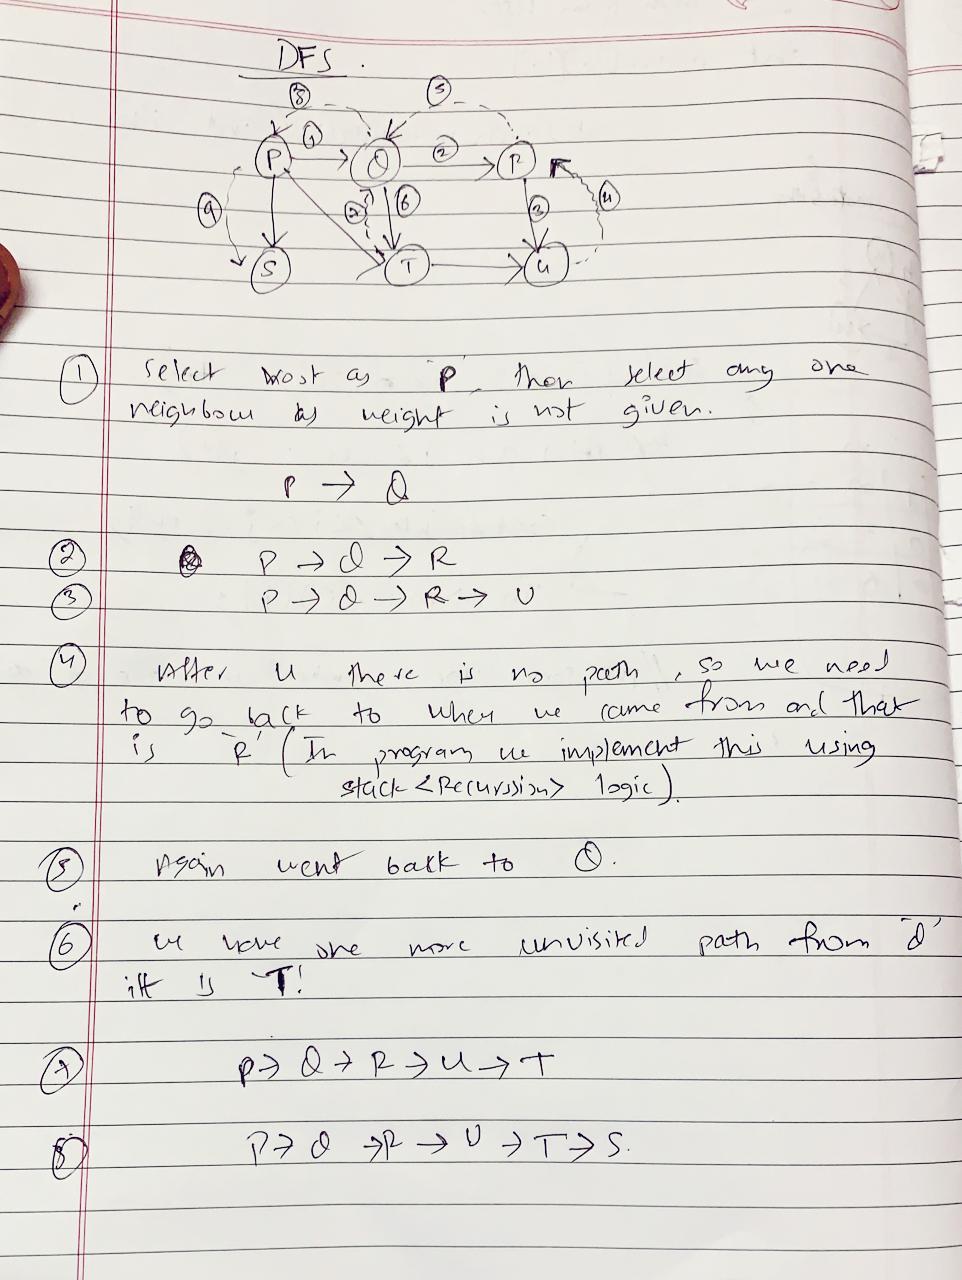 DFS.
8 5
P 1 Q 2 R
9 7 6 3 4
S T U
1 select root as 'P' then select any one
neighbour as weight is not given.
P → Q
2 P → Q → R
3 P → Q → R → U
4 After U there is no path, so we need
to go back to when we came from and that
is 'R' (In program we implement this using
stack <Recurssion> logic).
5 Again went back to Q.
6 we have one more unvisited path from 'Q'
is 'T'
7 P → Q → R → U → T
8 P → Q → R → U → T → S.